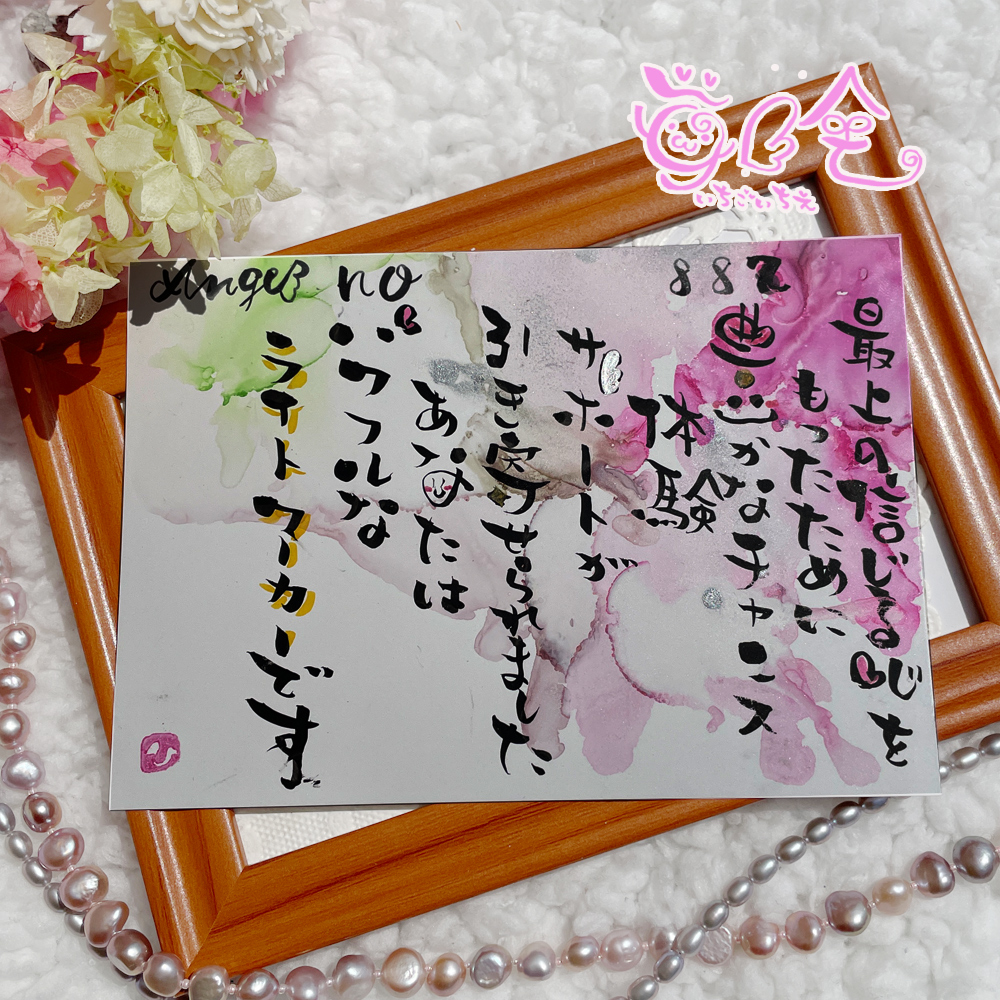 Angel no 882
最上の信じる心を
もったために
豊かなチャンス
体験
サポートが
引き寄せられました
あなたは
パワフルな
ライトワーカーです
いちごいちえ